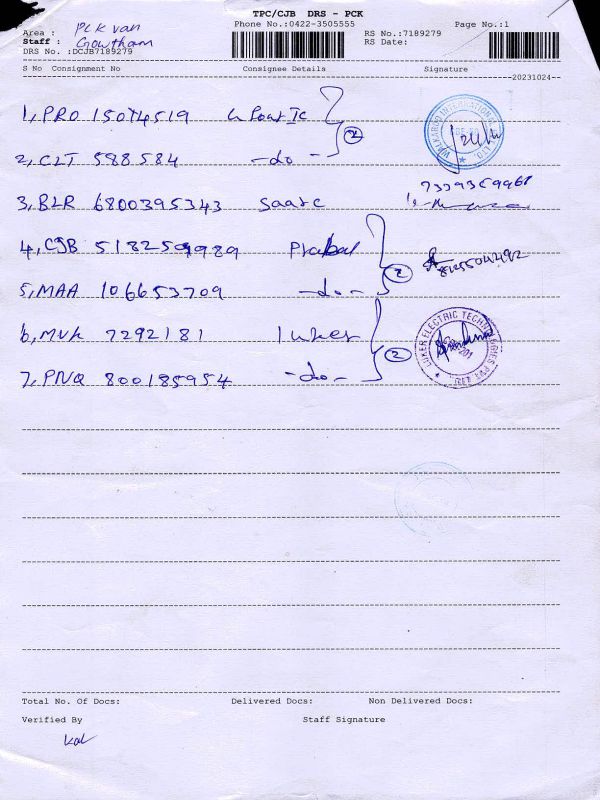 TPC/CJB DRS - PCK
Phone No.:0422-3505555 Page No.:1
Area : PCK van
Staff : Gowtham
RS No.:7189279
RS Date:
DRS No. :DCJB7189279
S No Consignment No Consignee Details Signature
20231024
1, PRO 15074519
WALKAROO INTERNATIONAL
2, CLT 588584 -do- 2
7339359968
3, BLR 6800395343 Saasc
4, CJB 518259989 Prabal
2
5, MAA 106653709 -do-
6, MVK 7292181 luker
LUKER ELECTRIC TECHNOLOGIES PVT LTD
2
7, PNQ 800185954 -do-
Total No. Of Docs: Delivered Docs: Non Delivered Docs:
Verified By Staff Signature